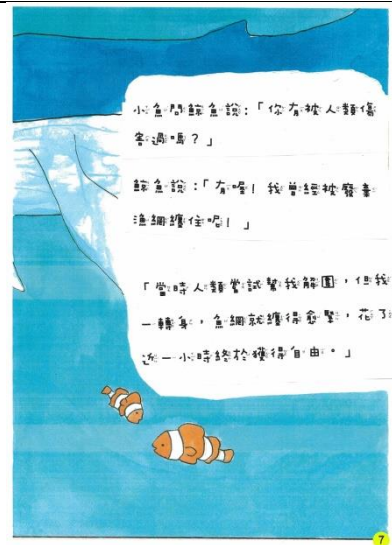 小魚問鯨魚說：「你有被人類傷
害過嗎？」
鯨魚說：「有喔！我曾經被廢棄
漁網纏住呢！」
「當時人類嘗試幫我解圍，但我
一轉身，魚網就纏得愈緊，花了
近一小時終於獲得自由。」
7